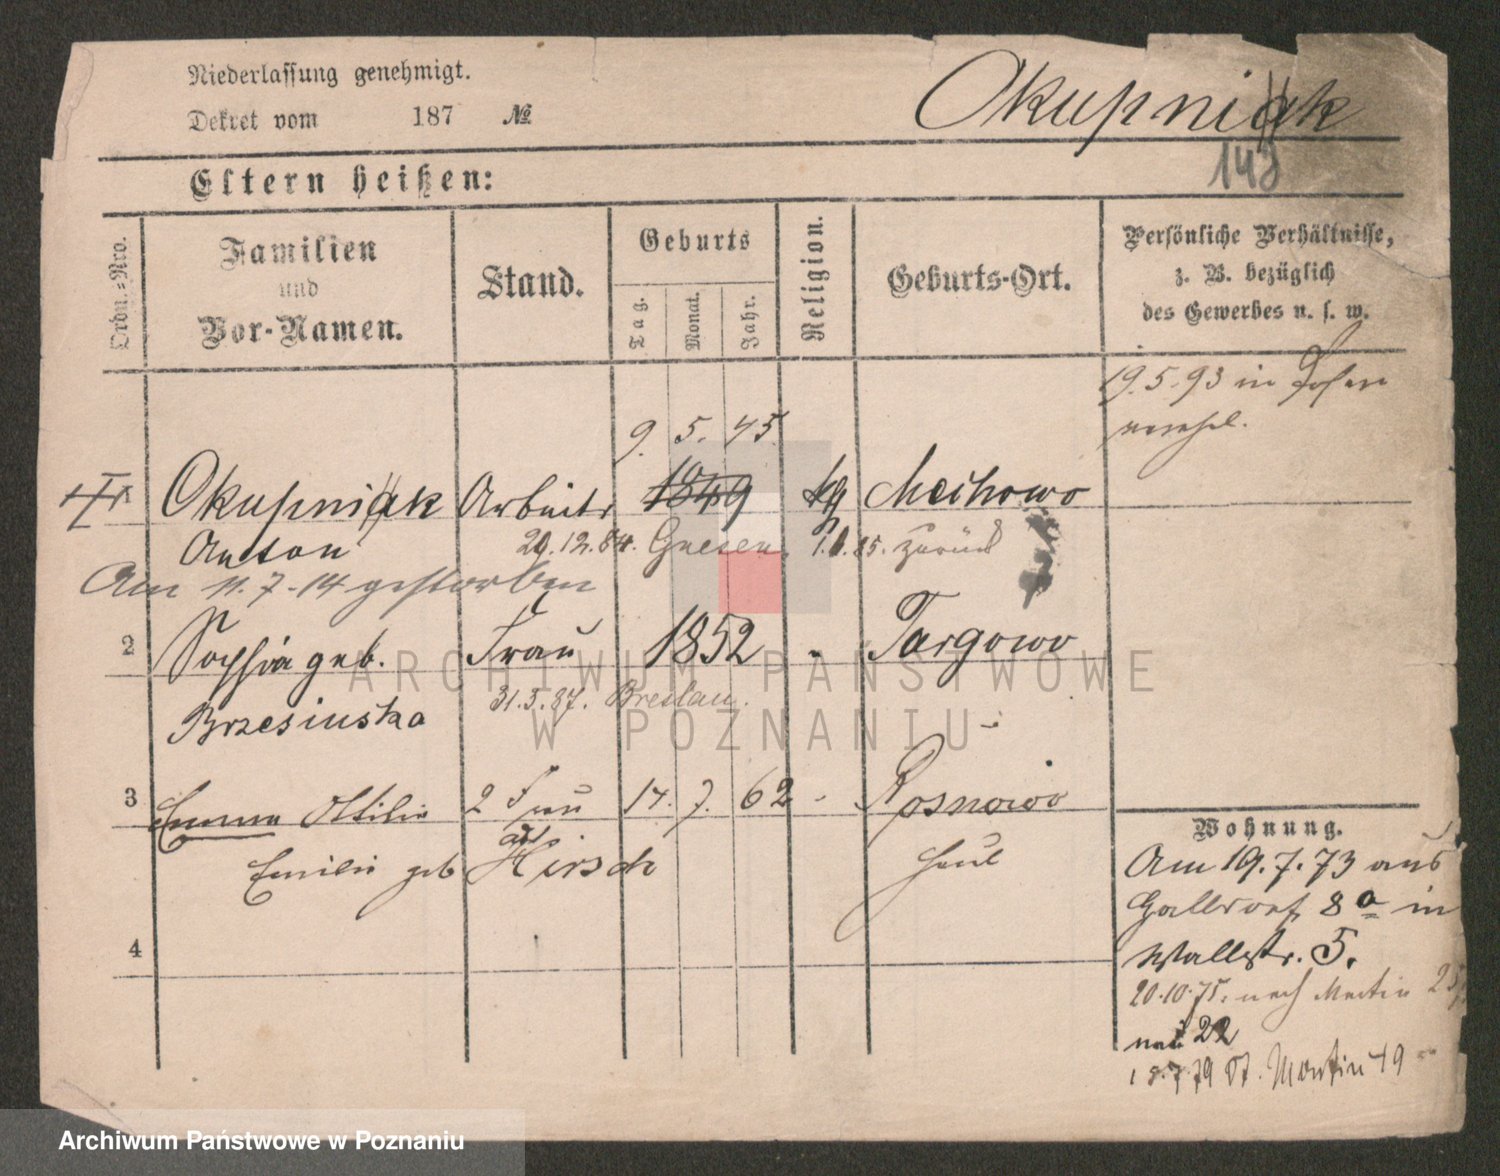 Niederlassung genehmigt.
Dekret vom 187 №
Okupniak
148
Eltern heißen:
Ordn.=Nro.
Familien
und
Vor-Namen.
Stand.
Geburts
Tag.
Monat.
Jahr.
Religion.
Geburts-Ort.
Persönliche Verhältnisse,
z. B. bezüglich
des Gewerbes u. s. w.
19.5.93 in Posen
verehel.
9. 5. 45
1 Okupniak Arbeiter 1849 kg Mechowo
Anton 29.12.84. Gnesen. 1.1.85. zurück
Am 11.7.14 gestorben
2 Sophia geb. Frau 1852 " Targowo
Brzesinska 31.3.87. Breslau.
3 Emma Ottilie 2 Frau 14. 7. 62 - Rosnowo
Emilie geb Hirsch Haul
4
Wohnung.
Am 19.7.73 aus
Halldorf 8a in
Wallstr. 5.
20.10.75. nach Martin 25
nach 22
18.7.79 St. Martin 49
ARCHIWUM PAŃSTWOWE
W POZNANIU
Archiwum Państwowe w Poznaniu